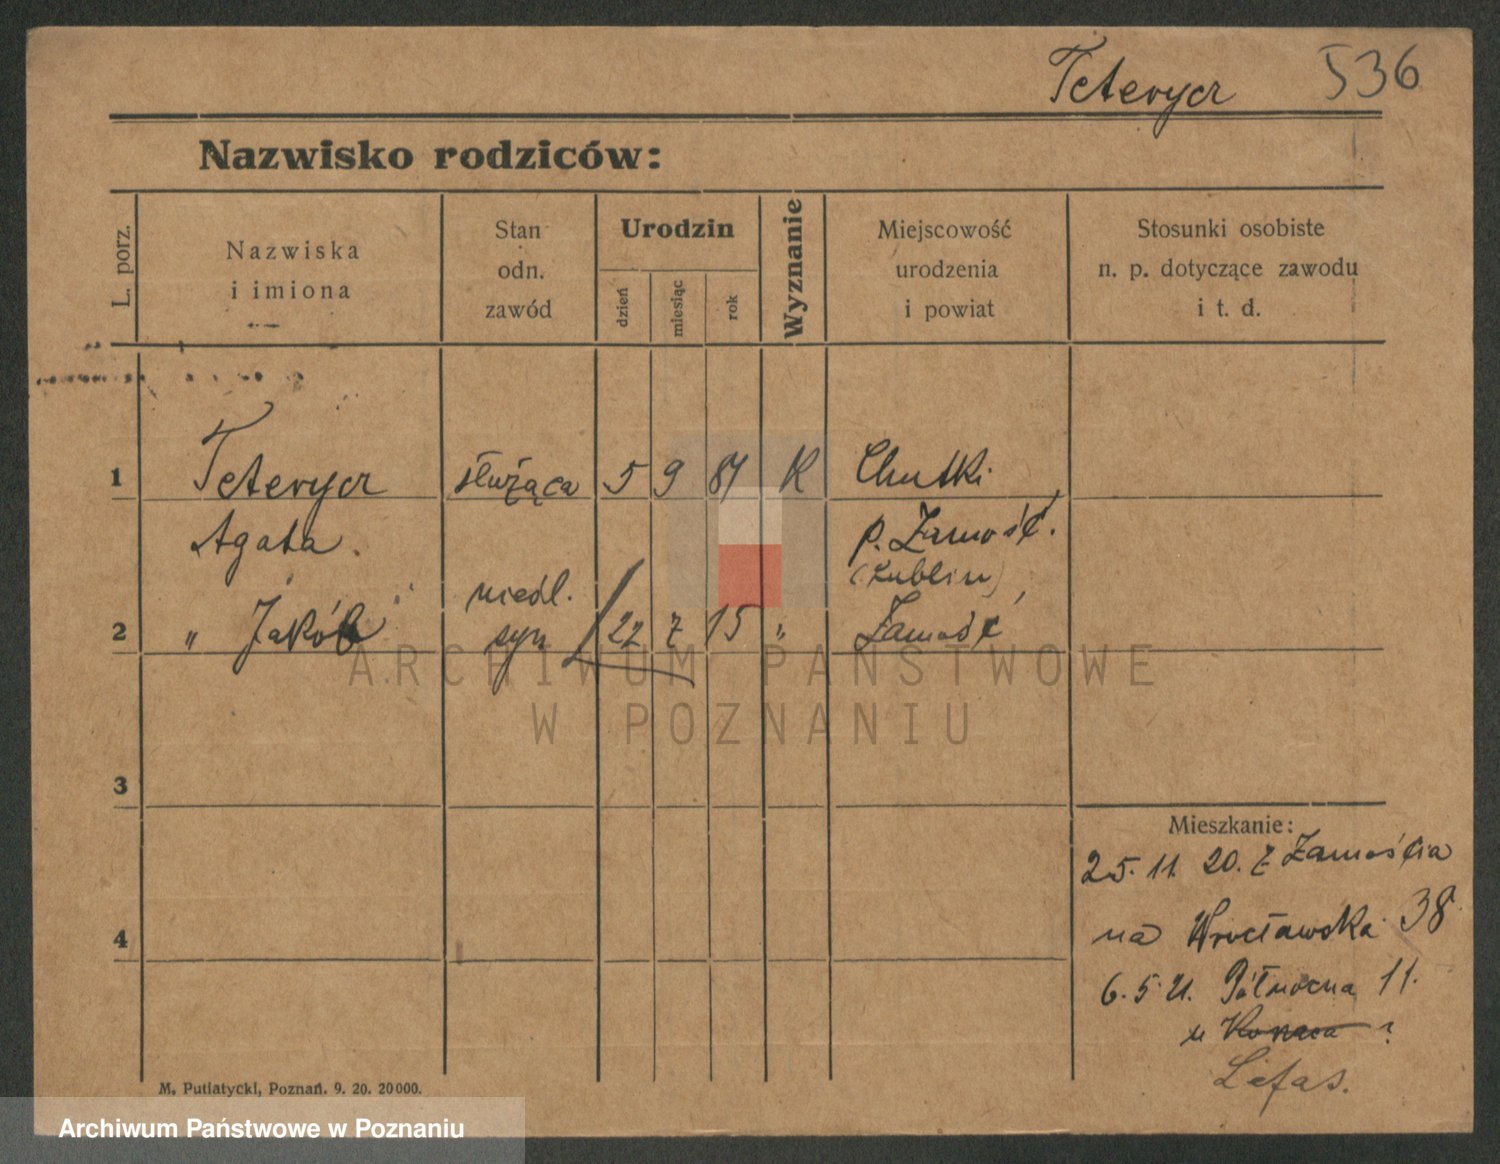 Teterycz 536
Nazwisko rodziców:
L. porz.
Nazwiska
i imiona
Stan
odn.
zawód
Urodzin
dzień
miesiąc
rok
Wyznanie
Miejscowość
urodzenia
i powiat
Stosunki osobiste
n. p. dotyczące zawodu
i t. d.
1 Teterycz służąca 5 9 87 K Chutki
Agata. p. Zamość.
(Lublin)
nieśl.
2 " Jakób syn 22 7 15 " Zamość
3
Mieszkanie:
25. 11. 20. z Zamościa
4
na Wrocławska 38
6. 5. 21. Północna 11.
u
M. Putiatycki, Poznań. 9. 20. 20000.
ARCHIWUM PAŃSTWOWE
W POZNANIU
Archiwum Państwowe w Poznaniu